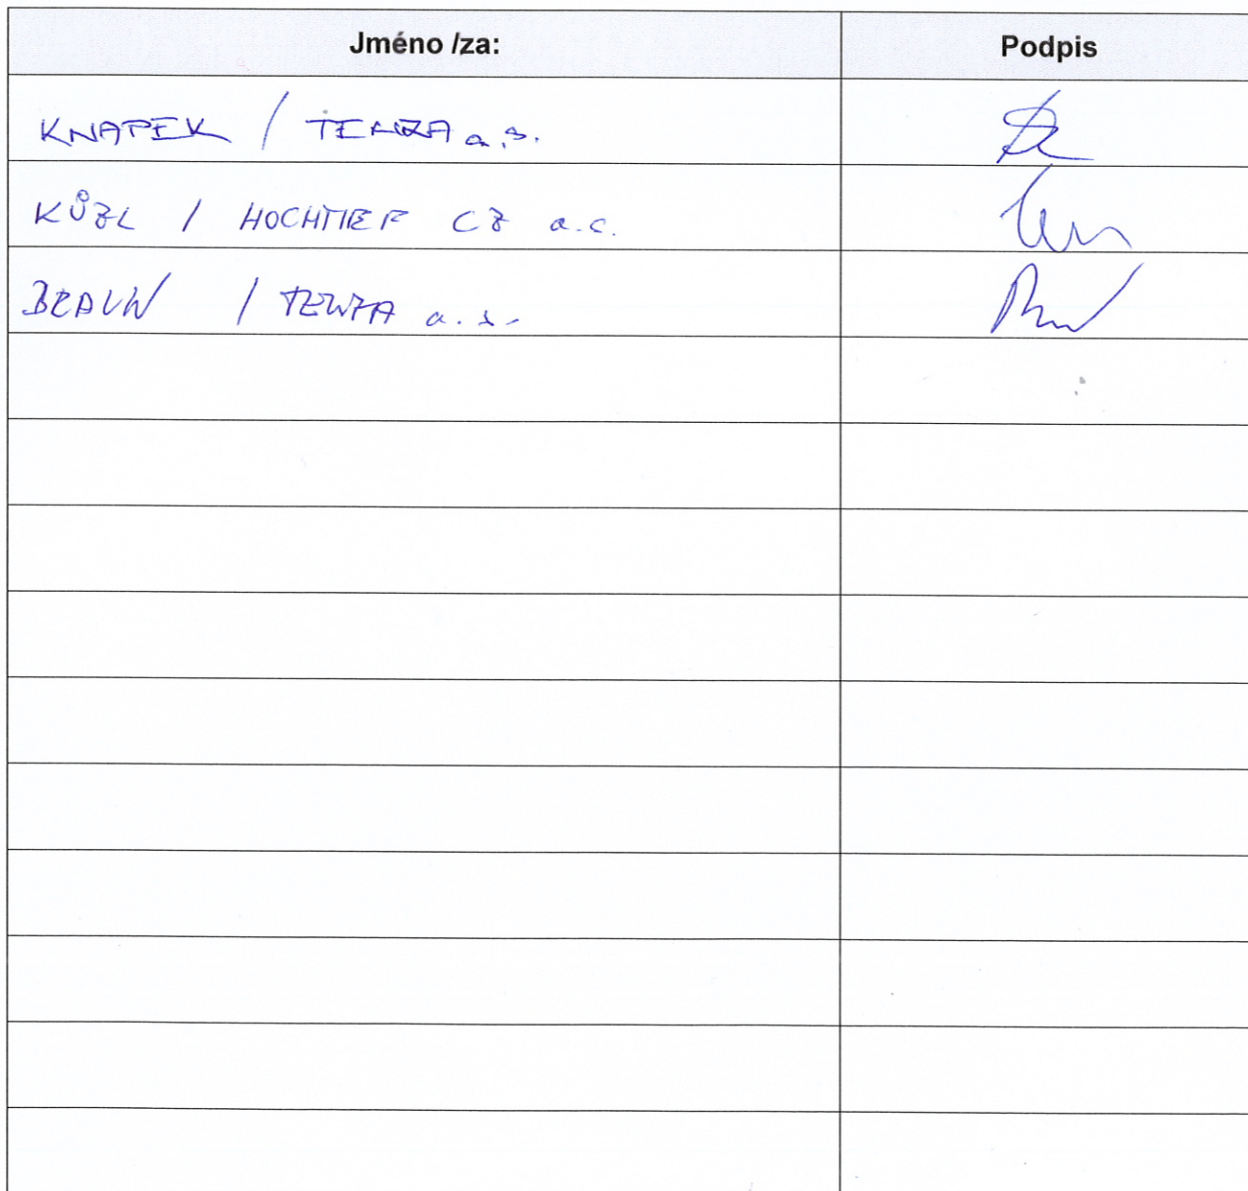 Jméno /za: Podpis
KNAPEK / TENZA a.s.
KŮZL / HOCHTIEF CZ a.s.
BRAUN / TENZA a.s.